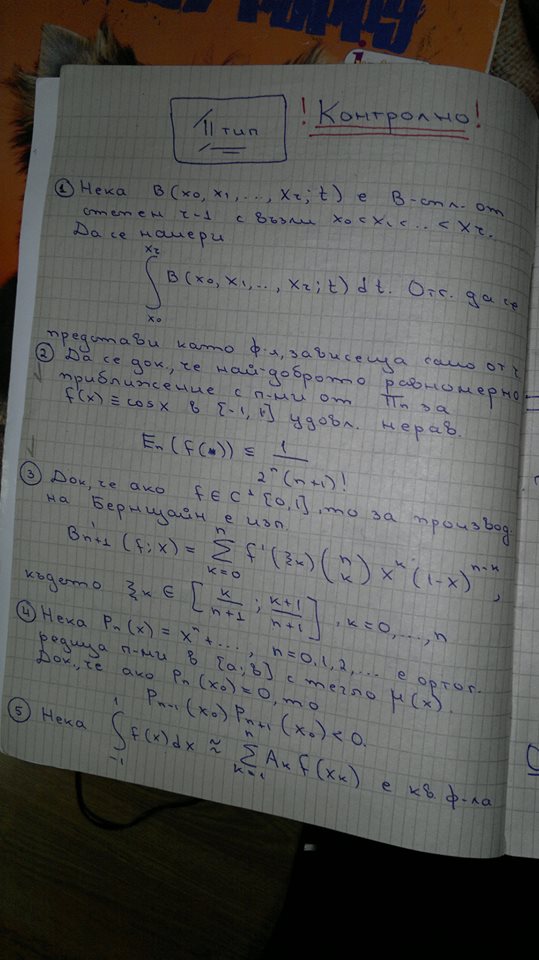 II тип
! Контролно!
① Нека B(x₀, x₁, ..., xᵣ; t) е B-спл. от
степен r-1 с възли x₀ < x₁ < .. < xᵣ.
Да се намери
∫_{x₀}^{xᵣ} B(x₀, x₁, ..., xᵣ; t) dt. Отг. да се
представи като ф-я, зависеща само от r
② Да се док., че най-доброто равномерно
приближение с п-ми от Πₙ за
f(x) ≡ cosx в [-1, 1] удовл. нерав.
Eₙ(f(•)) ≤ 1/(2ⁿ(n+1)!)
③ Док, че ако f ∈ C¹[0,1], то за производ.
на Бернщайн е изп.
B'ₙ₊₁(f; x) = ∑_{k=0}^{n} f'(ξₖ) (n k) xᵏ (1-x)ⁿ⁻ᵏ,
където ξₖ ∈ [k/(n+1); (k+1)/(n+1)], k=0,...,n
④ Нека Pₙ(x) = xⁿ + ..., n=0,1,2,... е ортог.
редица п-ми в [a; b] с тегло μ(x).
Док., че ако Pₙ(x₀) = 0, то
Pₙ₋₁(x₀) Pₙ₊₁(x₀) < 0.
⑤ Нека ∫_{-1}^{1} f(x)dx ≈ ∑_{k=1}^{n} Aₖ f(xₖ) е кв. ф-ла